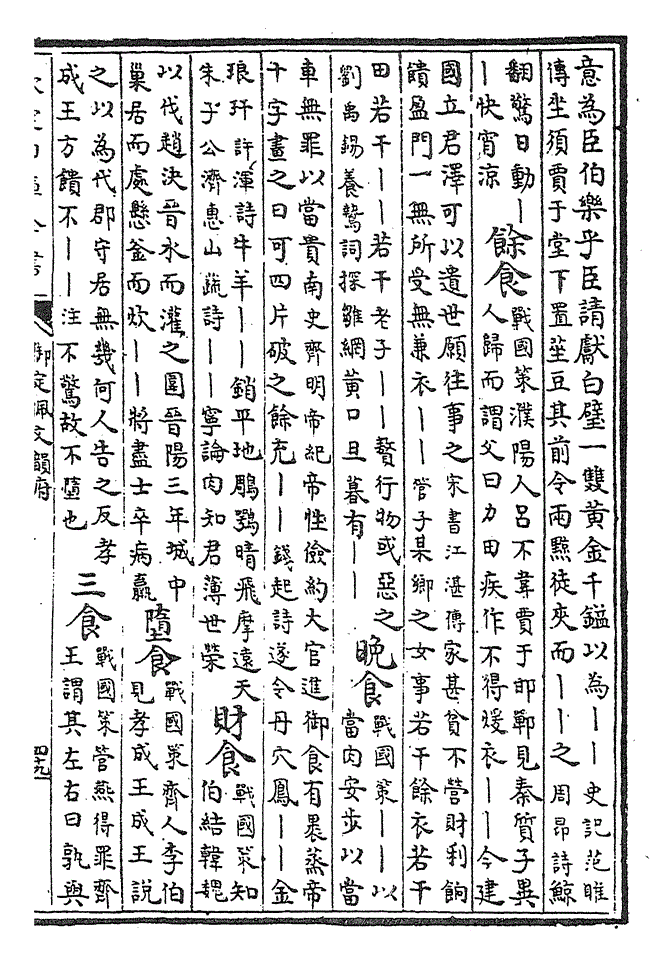 意為臣伯樂乎臣請獻白璧一雙黃金千鎰以為丨丨史記范雎
傳坐須賈于堂下置莝豆其前令兩黥徒夾而丨丨之周昂詩鯨
翻驚日動丨
丨快宵涼
餘食
戰國策濮陽人呂不韋賈于邯鄲見秦質子異
人歸而謂父曰力田疾作不得煖衣丨丨今建
國立君澤可以遺世願往事之宋書江湛傳家甚貧不營財利餉
饋盈門一無所受無兼衣丨丨管子某鄉之女事若干餘衣若干
田若干丨丨若干老子丨丨贅行物或惡之
劉禹錫養鷙詞探雛網黃口旦暮有丨丨
晚食
戰國策丨丨以
當肉安步以當
車無罪以當貴南史齊明帝紀帝性儉約大官進御食有裹蒸帝
十字畫之曰可四片破之餘充丨丨錢起詩遂令丹穴鳳丨丨金
琅玕許渾詩牛羊丨丨銷平地鵰鶚晴飛摩遠天
朱子公濟惠山蔬詩丨丨寧論肉知君薄世榮
財食
戰國策知
伯結韓魏
以伐趙決晉水而灌之圍晉陽三年城中
巢居而處懸釜而炊丨丨將盡士卒病羸
墮食
戰國策齊人李伯
見孝成王成王說
之以為代郡守居無幾何人告之反孝
成王方饋不丨丨注不驚故不墮也
三食
戰國策管燕得罪齊
王謂其左右曰孰與
御定佩文韻府